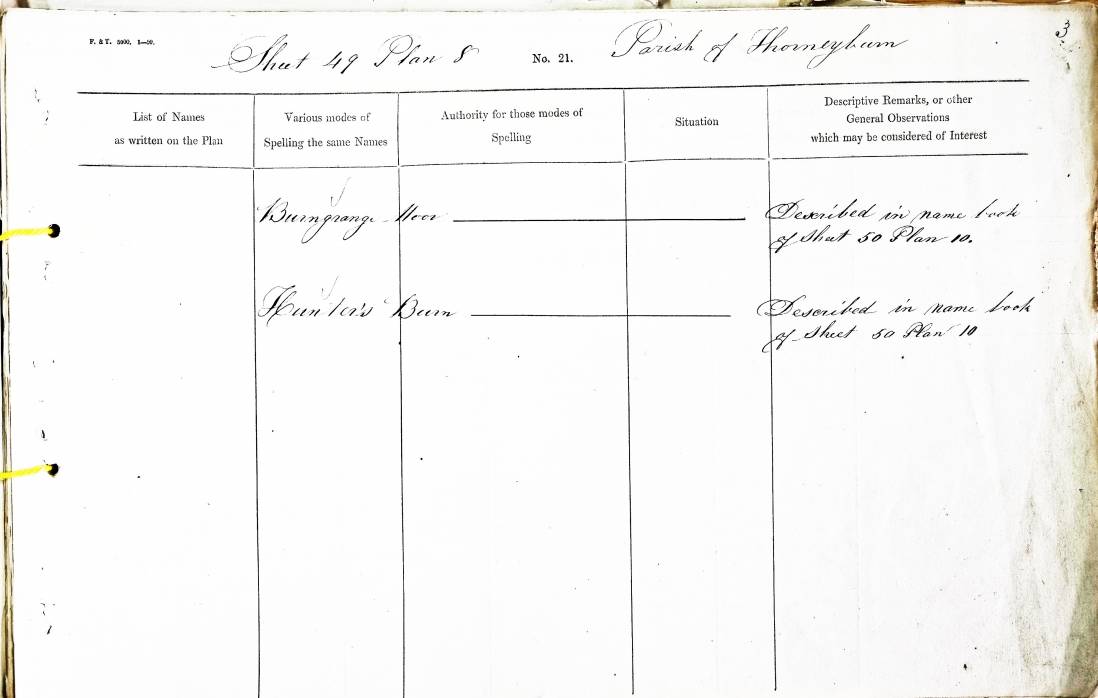 3
F. & T. 5000. 1—59.
Sheet 49 Plan 8 No. 21. Parish of Thorneyburn
List of Names
as written on the Plan
Various modes of
Spelling the same Names
Authority for those modes of
Spelling
Situation
Descriptive Remarks, or other
General Observations
which may be considered of Interest
Burngrange Moor Described in name book
of Sheet 50 Plan 10.
Hunter's Burn Described in name book
of Sheet 50 Plan 10